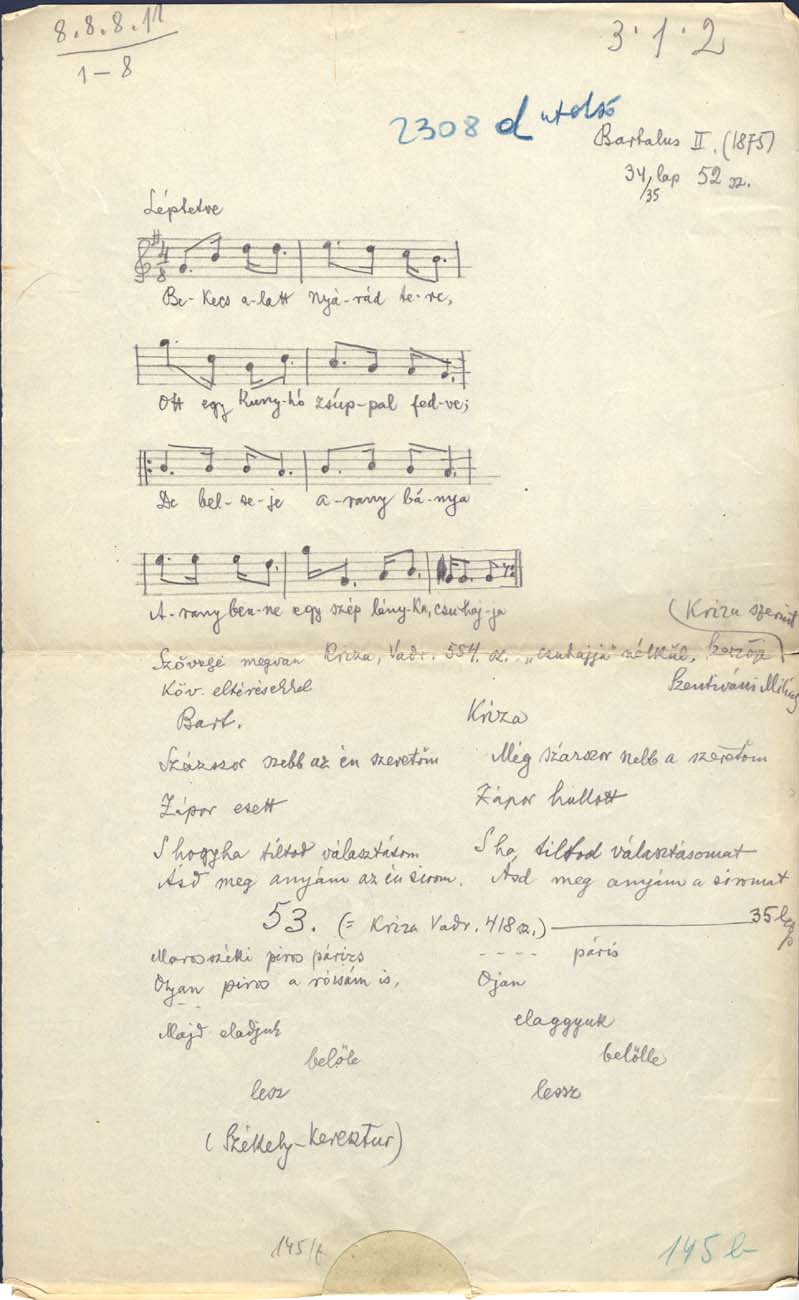 8.8.8.11
1-8
3·1·2
2308 d utolsó
Bartalus II. (1875)
34/35 lap 52 sz.
Léptetve
4/8
Be-kecs a-latt Nyá-rád te-re,
Ott egy kuny-hó zsúp-pal fed-ve;
De bel-se-je a-rany bá-nya
A-rany ben-ne egy szép lány-ka, csuhaj-ja
(Kriza szerint
Szövege megvan Kriza, Vadr. 554. sz. „csuhajja" nélkül,
Köv. eltérésekkel
Szentiváni Mihály
Bart. Kriza
Százszor szebb az én szeretőm Még százszor szebb a szeretőm
Zápor esett Zápor hullott
S hogyha tiltod választásom S ha tiltod választásomat
Ásd meg anyám az én sirom. Ásd meg anyám a siromat
53. (= Kriza Vadr. 418 sz.) 35 lap
Marosszéki piros párizs - - - - páris
Olyan piros a rózsám is, Ojan
Majd eladjuk elaggyuk
belőle belőlle
lesz lessz
(Székely-Keresztur)
145/f
145 b